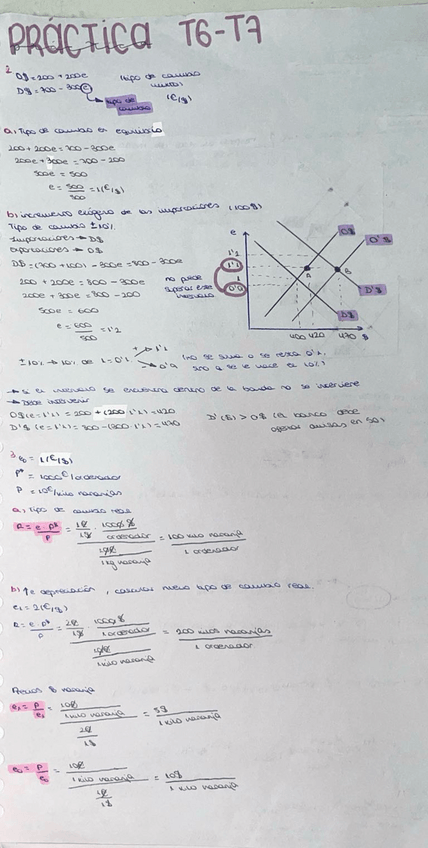 PRÁCTICA T6-T7
2. O$ = 200 + 200e (tipo de cambio
D$ = 700 - 300e
tipo de cambio (€/$)
a, Tipo de cambio en equilibrio
200 + 200e = 700 - 300e
200e + 300e = 700 - 200
500e = 500
e = 500/500 = 1 (€/$)
b, incremento exógeno de las importaciones (100$)
Tipo de cambio ±10%
Importaciones → D$
Exportaciones → O$
D$ = (700 + 100) - 300e = 800 - 300e
200 + 200e = 800 - 300e
200e + 300e = 800 - 200
500e = 600
e = 600/500 = 1'2
no puede superar este intervalo
e
1'2
1'1
1
0'9
O$
O'$
A
B
D'$
D$
400 420 470 $
±10% → 10% de 1 = 0'1
+ → 1'1
- → 0'9
(no se suma o se resta 0'1, sino q se le hace el 10%)
→ Si el intervalo se encuentra dentro de la banda no se interviene
→ Debe intervenir
O$ (e = 1'1) = 200 + (200 · 1'1) = 420
D'$ (e = 1'1) = 800 - (300 · 1'1) = 470
D'($) > O$ (el banco debe
ofertar divisas en 50)
3. e0 = 1 (€/$)
P* = 1000$/ordenador
P = 10€/kilo naranjas
a, Tipo de cambio real
R = e · P*/P = 1€/1$ · 1000$/1 ordenador / 10€/1 kg naranja = 100 kilo naranja/1 ordenador
b, 1e depreciación, calcular nuevo tipo de cambio real.
e1 = 2 (€/$)
R = e · P*/P = 2€/1$ · 1000$/1 ordenador / 10€/1 kilo naranja = 200 kilos naranjas/1 ordenador
Precios $ naranja
e1 = P/e1 = 10€/1 kilo naranja / 2€/1$ = 5$/1 kilo naranja
e0 = P/e0 = 10€/1 kilo naranja / 1€/1$ = 10$/1 kilo naranja